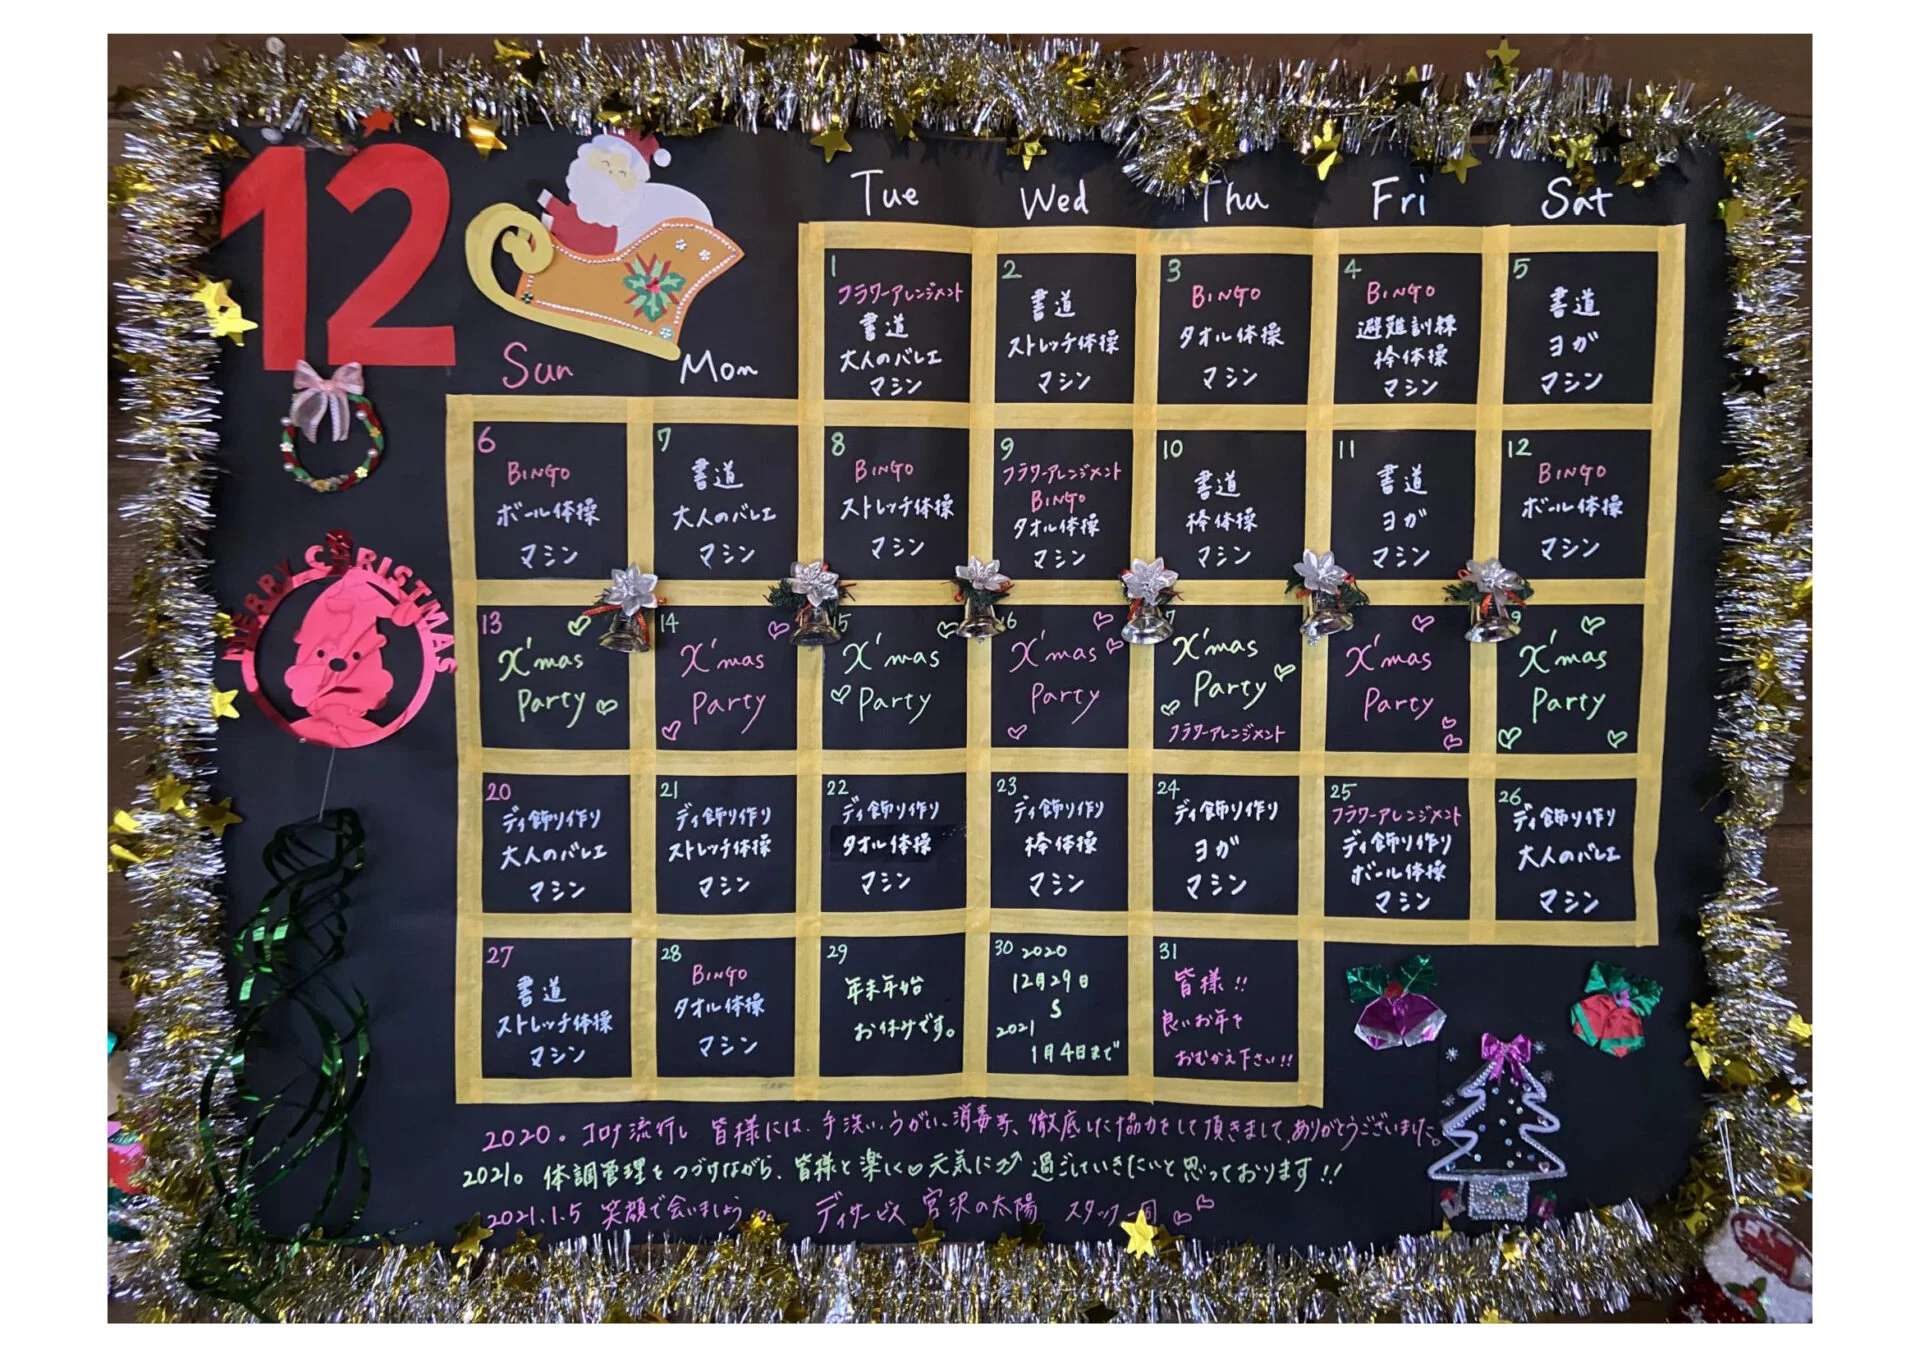 12
Sun
Mon
Tue
Wed
Thu
Fri
Sat
1
フラワーアレンジメント
書道
大人のバレエ
マシン
2
書道
ストレッチ体操
マシン
3
BINGO
タオル体操
マシン
4
BINGO
避難訓練
棒体操
マシン
5
書道
ヨガ
マシン
6
BINGO
ボール体操
マシン
7
書道
大人のバレエ
マシン
8
BINGO
ストレッチ体操
マシン
9
フラワーアレンジメント
BINGO
タオル体操
マシン
10
書道
棒体操
マシン
11
書道
ヨガ
マシン
12
BINGO
ボール体操
マシン
MERRY CHRISTMAS
13
X'mas
Party
14
X'mas
Party
15
X'mas
Party
16
X'mas
Party
7
X'mas
Party
フラワーアレンジメント
X'mas
Party
9
X'mas
Party
20
ディ飾り作り
大人のバレエ
マシン
21
ディ飾り作り
ストレッチ体操
マシン
22
ディ飾り作り
タオル体操
マシン
23
ディ飾り作り
棒体操
マシン
24
ディ飾り作り
ヨガ
マシン
25
フラワーアレンジメント
ディ飾り作り
ボール体操
マシン
26
ディ飾り作り
大人のバレエ
マシン
27
書道
ストレッチ体操
マシン
28
BINGO
タオル体操
マシン
29
年末年始
お休みです。
30 2020
12月29日
S
2021
1月4日まで
31
皆様!!
良いお年を
おむかえ下さい!!
2020。コロナ流行し 皆様には、手洗い、うがい、消毒等、徹底した協力をして頂きまして、ありがとうございました。
2021。体調管理をつづけながら、皆様と楽しく♡元気に 過ごしていきたいと思っております!!
2021.1.5 笑顔で会いましょう 。 ディサービス 宮沢の太陽 スタッフ一同 ♡♡